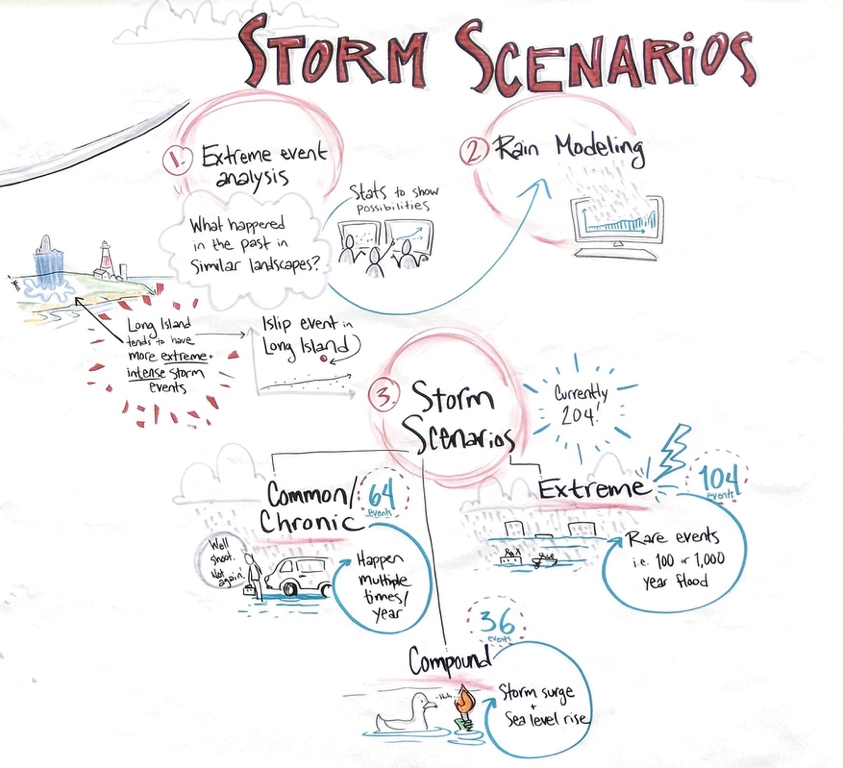 STORM SCENARIOS
1. Extreme event
analysis
What happened
in the past in
Similar landscapes?
Stats to show
possibilities
2 Rain Modeling
Long Island
tends to have
more extreme +
intense storm
events
Islip event in
Long Island
3. Storm
Scenarios
Currently
204!
Common/
Chronic
64
events
Well
shoot.
Not
again.
Happen
multiple
times/
year
Extreme
104
events
Rare events
i.e. 100 or 1,000
year flood
36
events
Compound
Huh.
Storm surge
+
Sea level rise